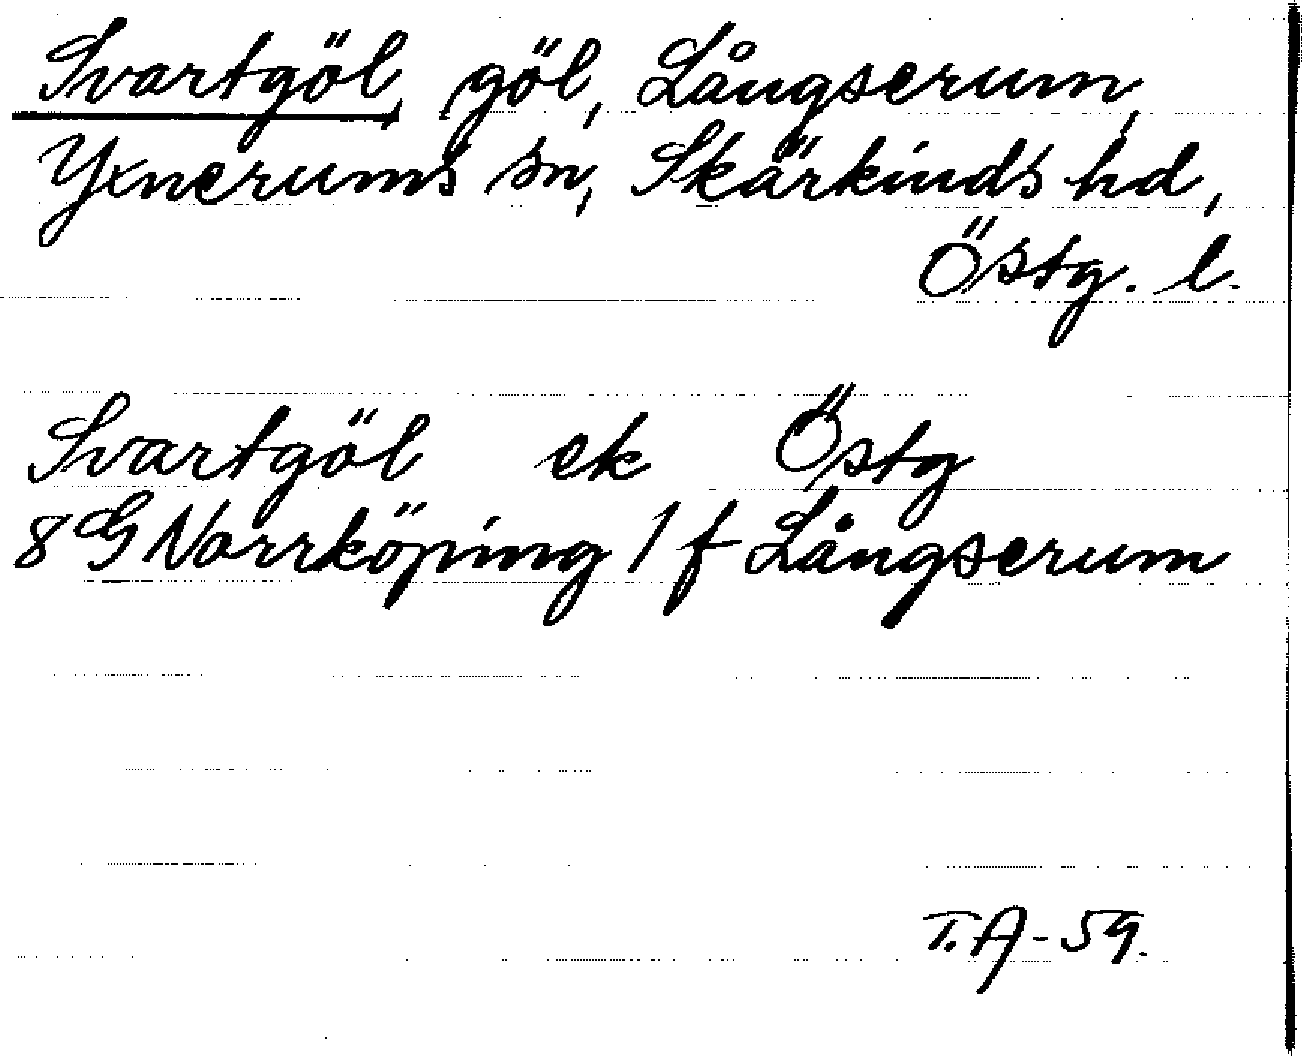 Svartgöl, göl, Långserum,
Yxnerums sn, Skärkinds hd,
Östg. l.
Svartgöl ek Östg
8 G Norrköping 1 f Långserum
T.A-59.